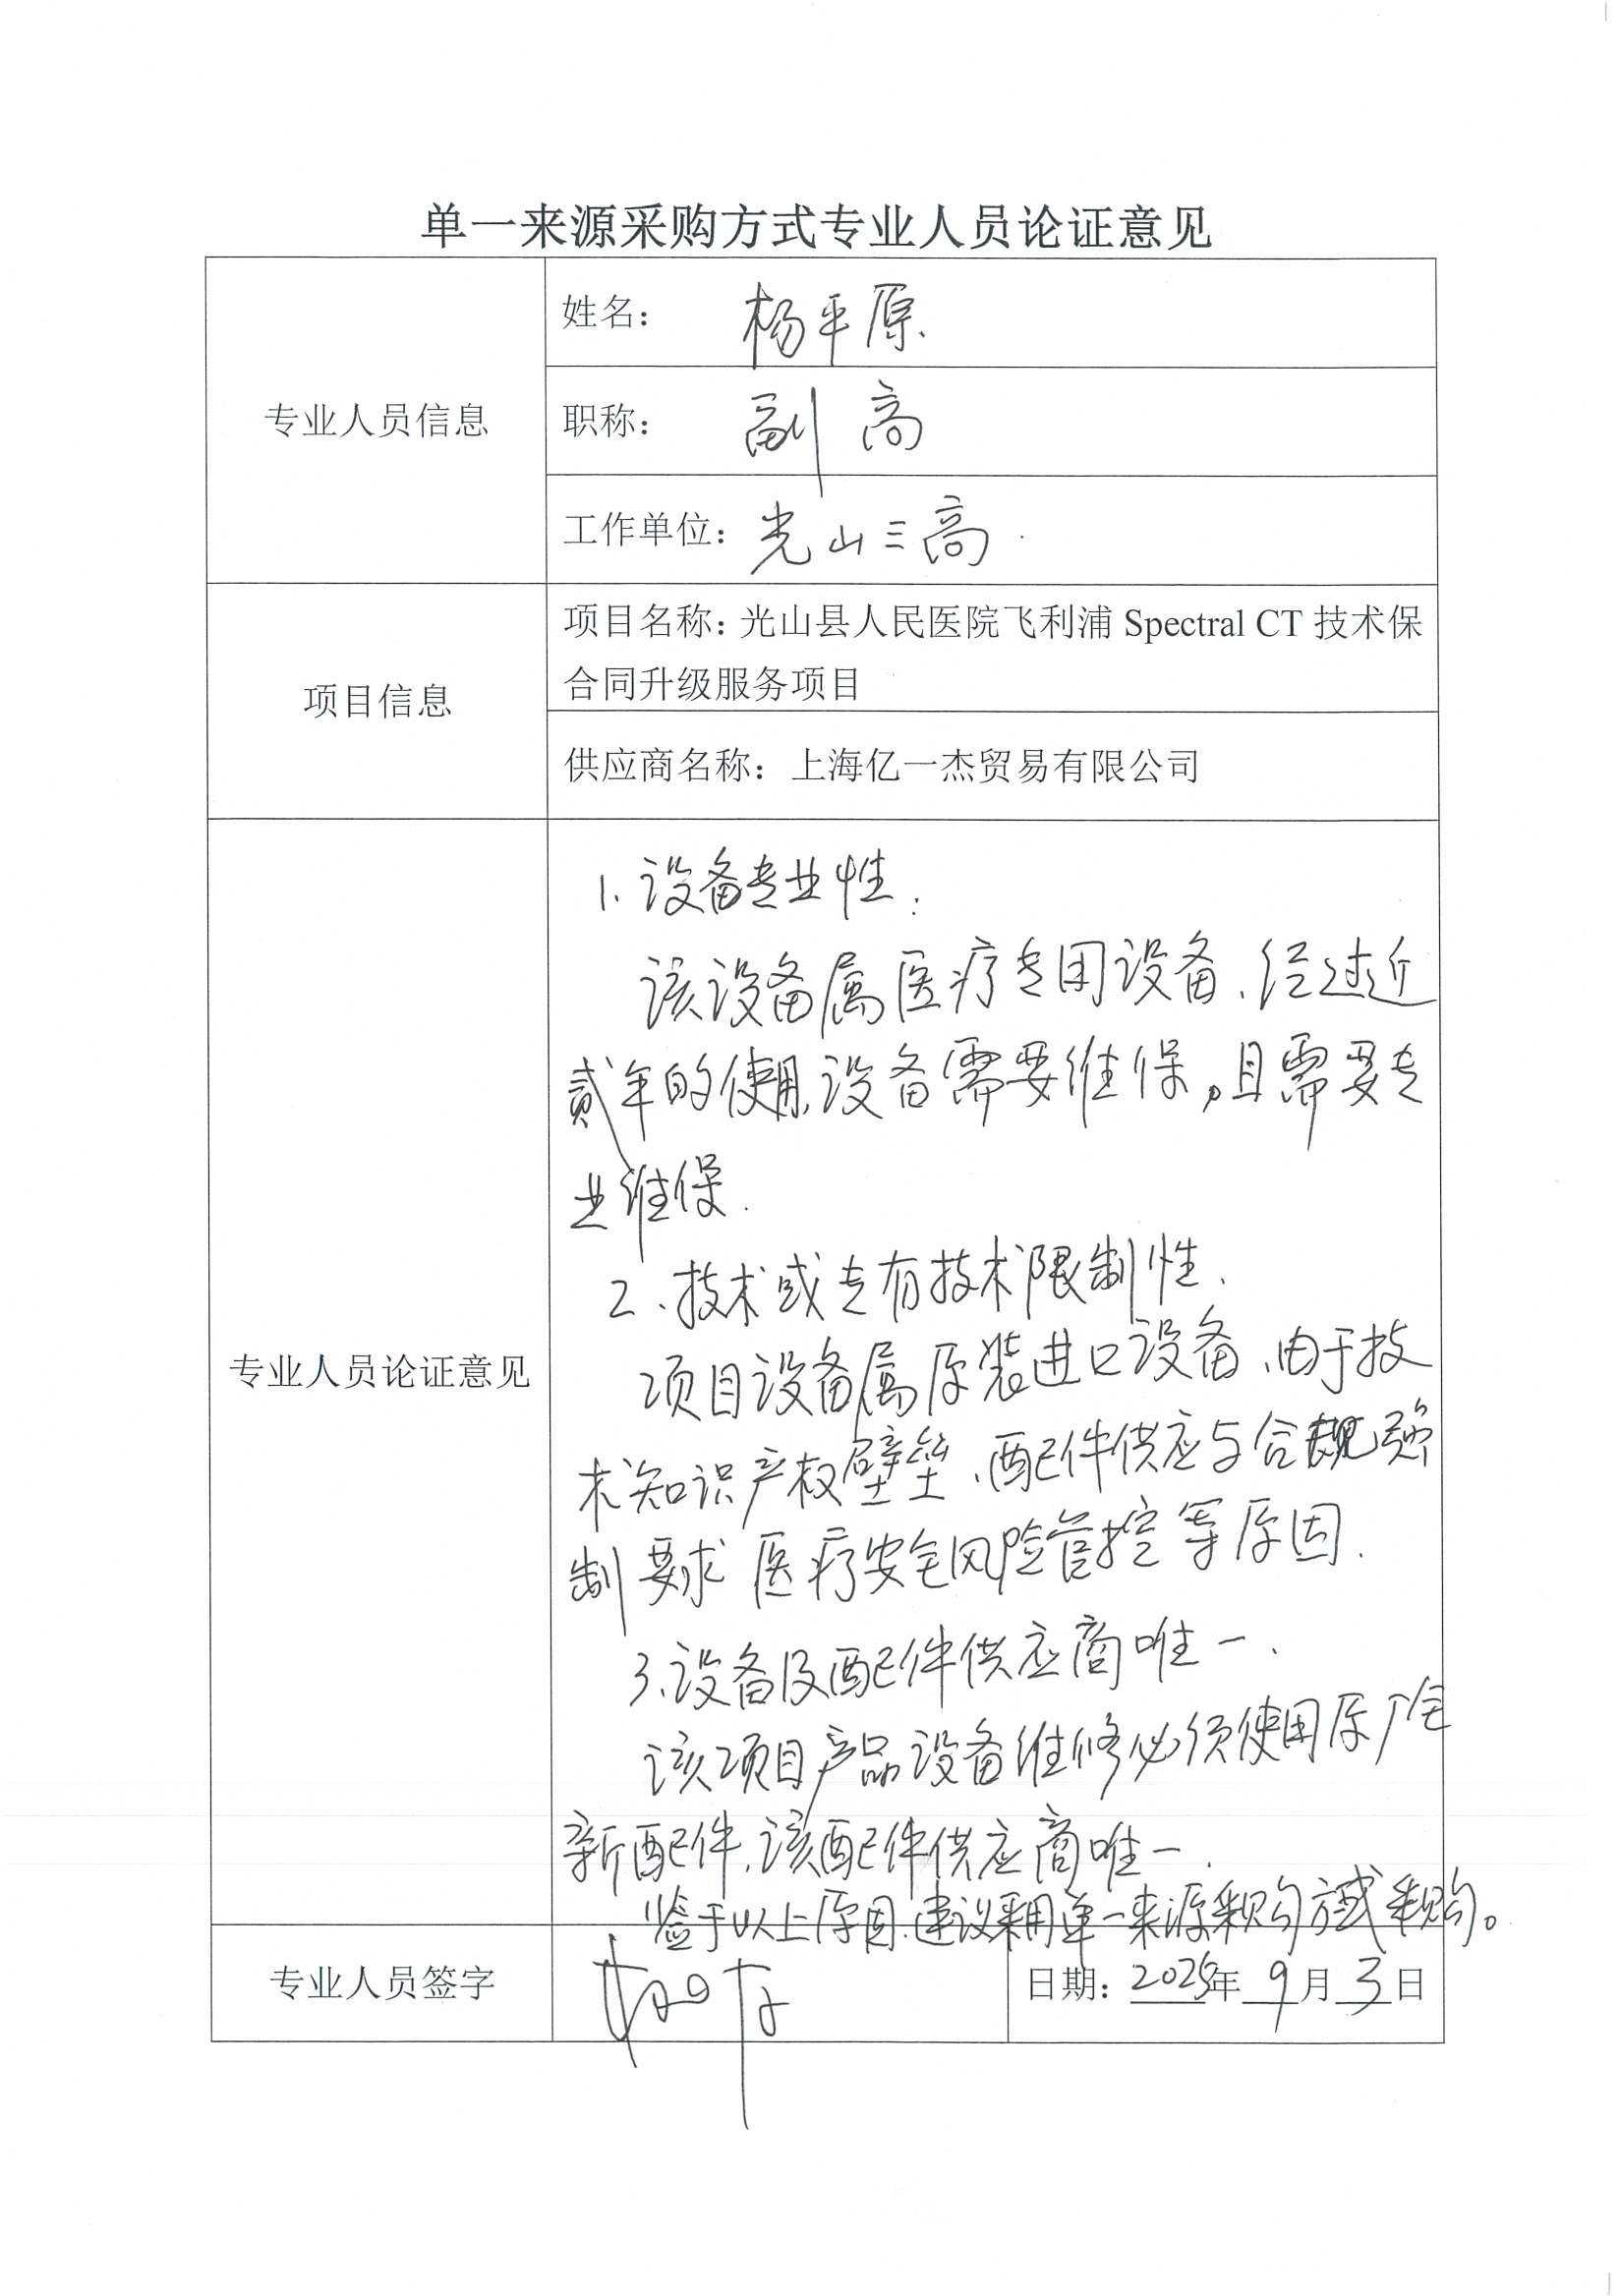 单一来源采购方式专业人员论证意见
专业人员信息
姓名： 杨平原
职称： 副高
工作单位：光山三高
项目信息
项目名称：光山县人民医院飞利浦 Spectral CT 技术保
合同升级服务项目
供应商名称：上海亿一杰贸易有限公司
专业人员论证意见
1.设备专业性:
该设备属医疗专用设备、经过近
贰年的使用,设备需要维保,且需要专
业维保.
2、技术或专有技术限制性.
项目设备属原装进口设备、由于技
术知识产权壁垒、配件供应与合规强
制要求 医疗安全风险管控等原因.
3、设备及配件供应商唯一.
该项目产品设备维修必须使用原厂全
新配件,该配件供应商唯一.
鉴于以上原因.建议采用单一来源采购方式采购。
专业人员签字
日期：2025年 9月 3日